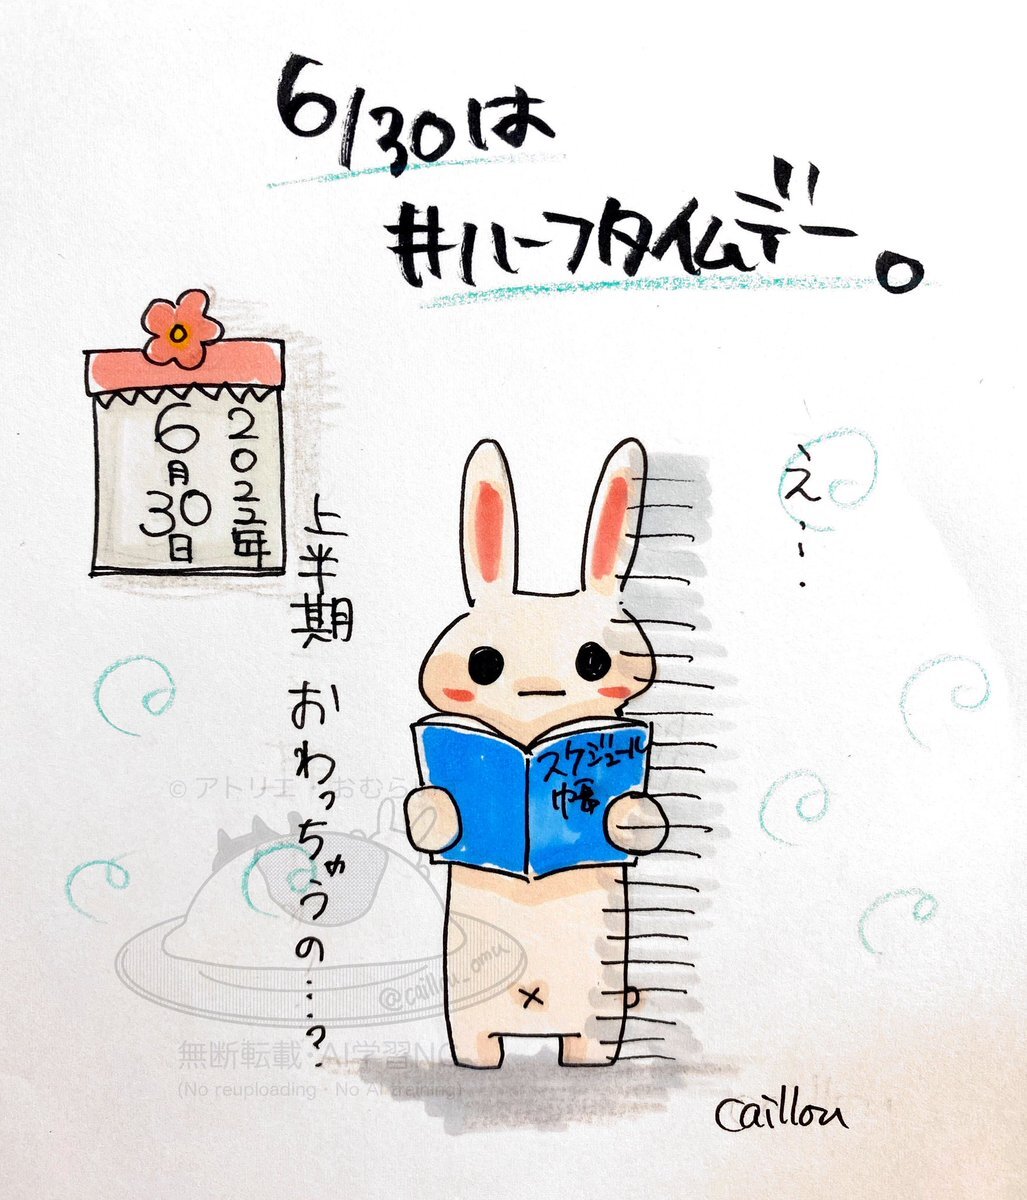 6/30は
#ハーフタイムデー。
2022年
6月30日
え…
上半期 おわっちゃうの…?
スケジュール
帳
© アトリエ・おむら
@caillou_omu
無断転載・AI学習NG
(No reuploading・No AI training)
caillou